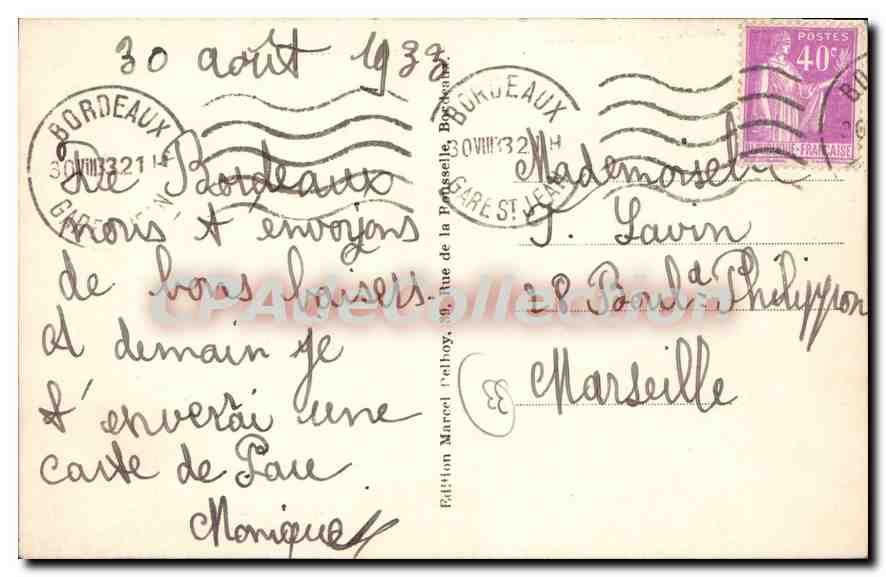 30 août 1933
BORDEAUX
30 VIII 33 21 H
GARE
De Bordeaux
nous t envoyons
de bons baisers
A demain je
t'enverai une
carte de Pau
Monique
Edition Marcel Delboy, 39, Rue de la Rousselle, Bordeaux.
BORDEAUX
30 VIII 33 2 H
GARE ST JEAN
POSTES
40c
FRANÇAISE
BO
Mademoiselle
Lavin
Boul d Philippon
Marseille
33
CPADeCollection